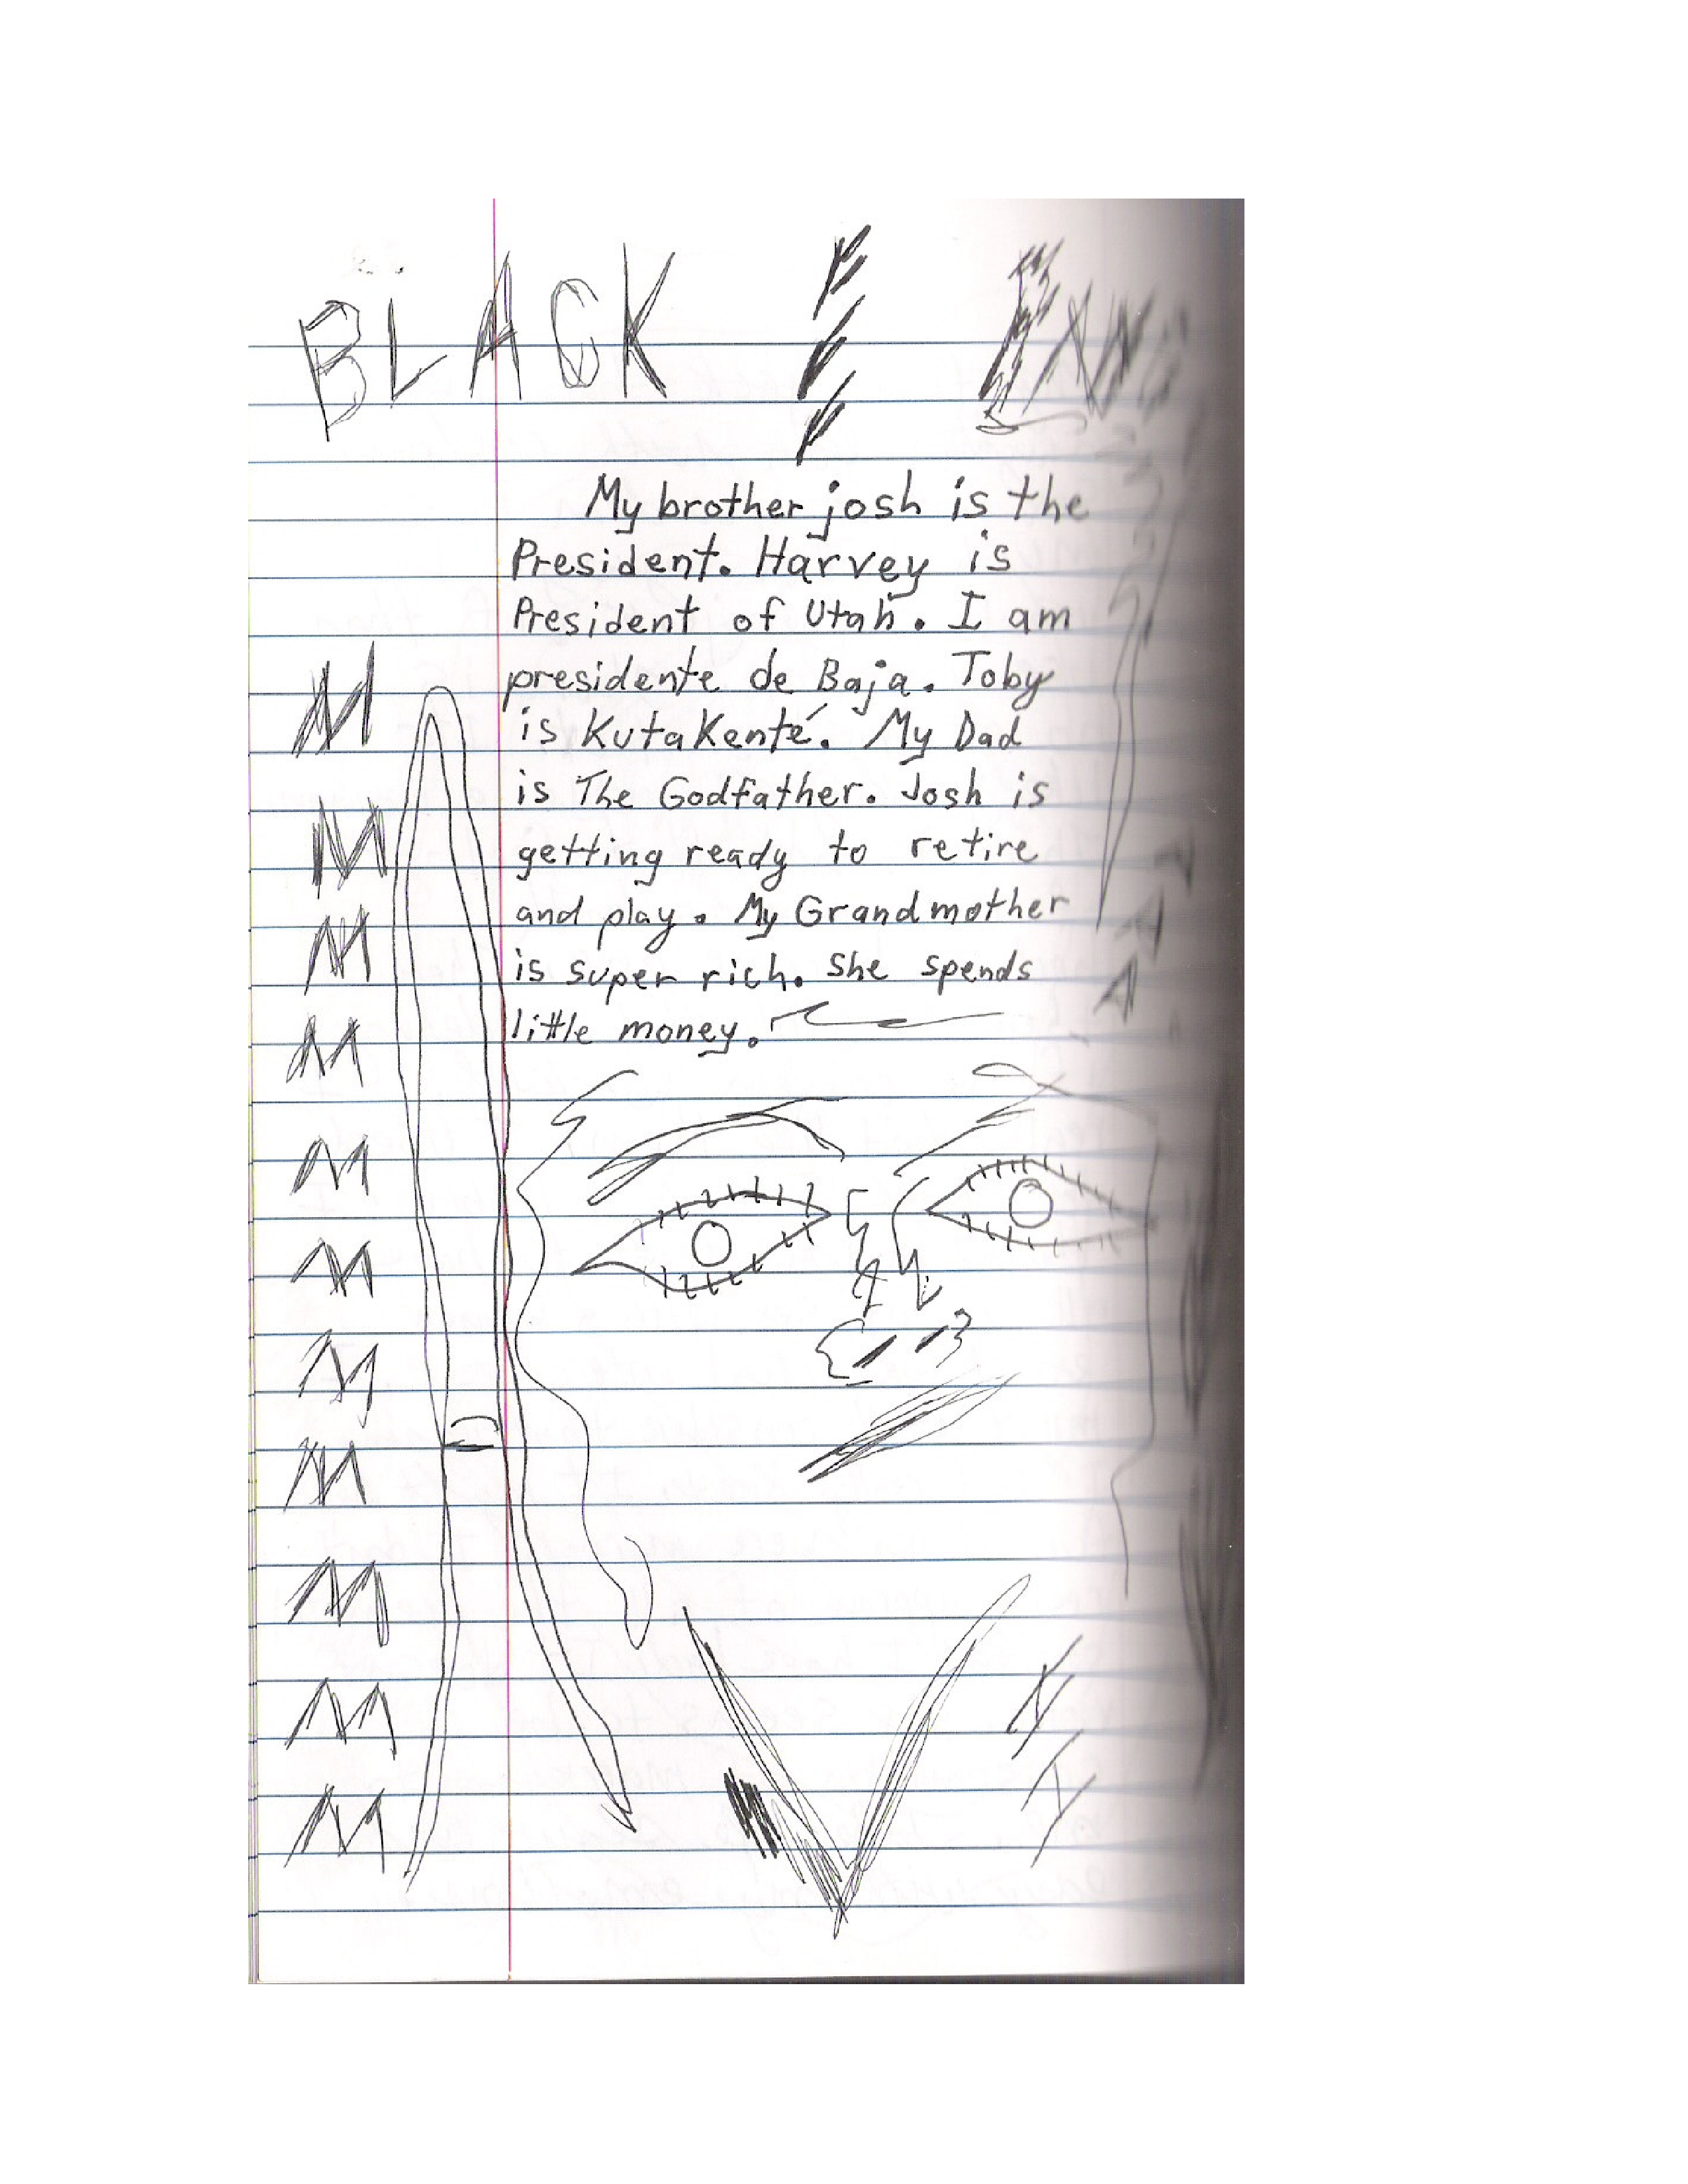 BLACK
My brother josh is the
President. Harvey is
President of Utah. I am
presidente de Baja. Toby
is Kuta Kenté. My Dad
is The Godfather. Josh is
getting ready to retire
and play. My Grandmother
is super rich. She spends
little money.
M
M
M
M
M
M
M
M
M
M
M